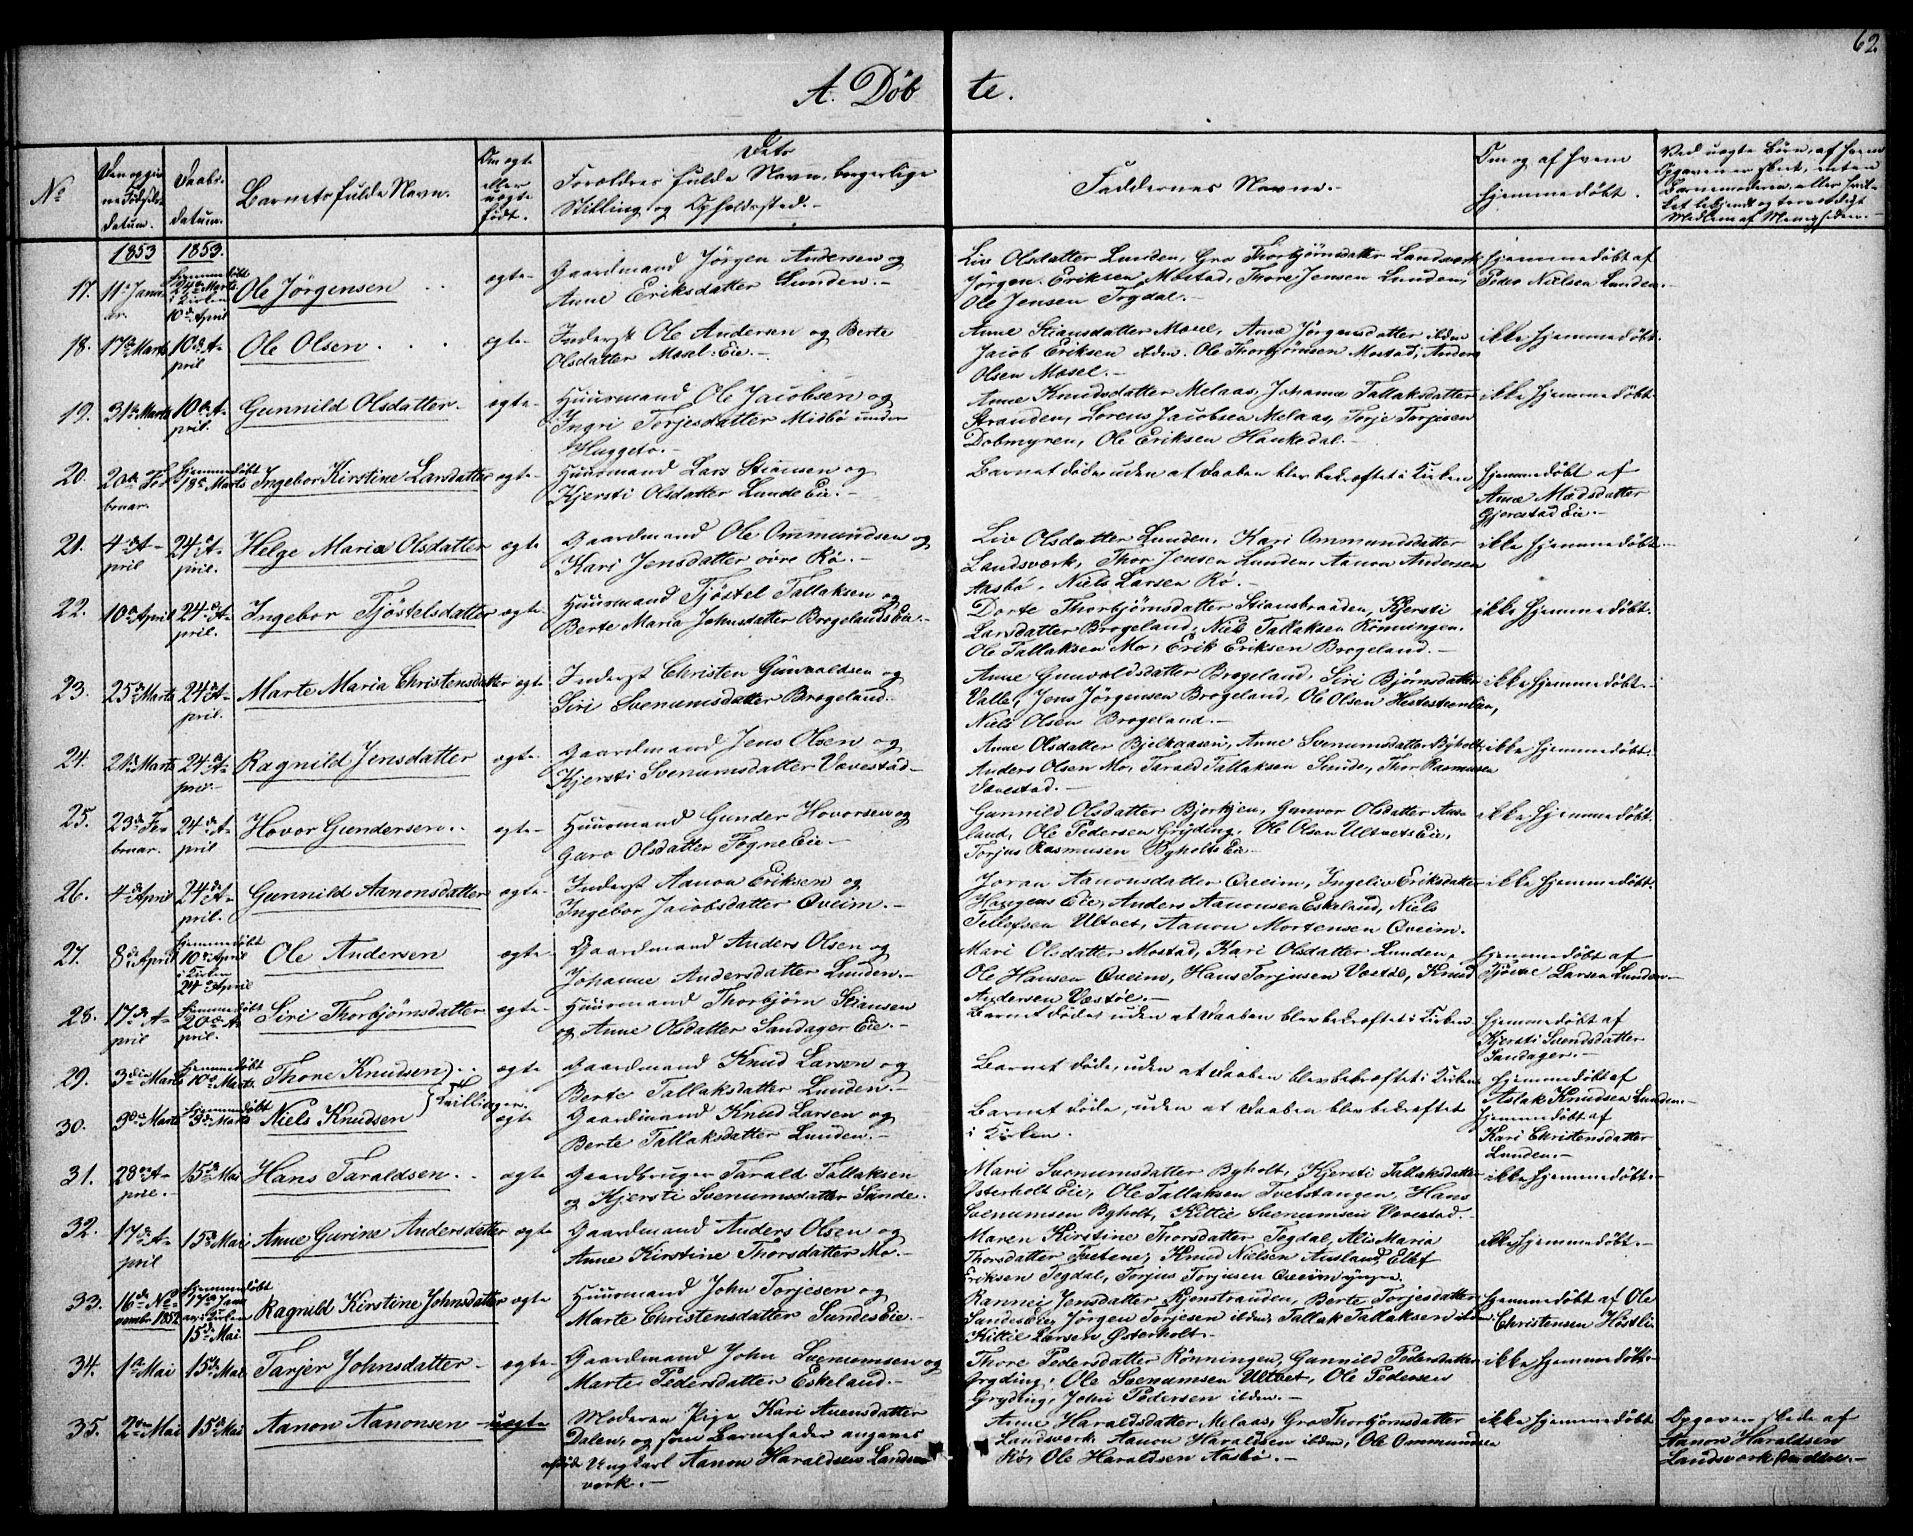 62.
A. Döb te.
No
Den opgivne Fødselsdatum.
Daabsdatum.
Barnets fulde Navn.
Om ægte eller uægte født.
Dets Forældres fulde Navn, borgerlige Stilling og Opholdssted.
Faddernes Navne.
Om og af hvem hjemmedøbt.
Ved uægte Børn, af hvem Opgaven er skeet, enten Barnemoderen, eller hvilket bekjendt og troværdigt Medlem af Menigheden.
1853 1853.
17. 11te Januar. Hjemmedøbt 24de Marts i Kirken 10de April Ole Jörgensen ægte
Gaardmand Jörgen Andersen og
Anne Eriksdatter Lunden.
Liv Olsdatter Lunden, Gro Thorbjörnsdatter Landsverk
Jörgen Eriksen Mostad, Thore Jensen Lunden,
Ole Jensen Togdal.
Hjemmedöbt af
Peder Nielsen Lunden.
18. 17de Marts 10de April Ole Olsen ægte
Inderst Ole Andersen og Berte
Olsdatter Mosal Eie.
Anne Stiansdatter Mosel, Anne Jörgensdatter ibdm
Jacob Eriksen ibdm. Ole Thorbjörnsen Mostad, Anders
Olsen Mosel.
ikke hjemmedöbt.
19. 31te Marts 10de April. Gunnild Olsdatter ægte
Huusmand Ole Jacobsen og
Ingri Torjesdatter Midbö under
Huggeto.
Anne Knudsdatter Melaas, Johanne Tallaksdatter
Stranden, Lorens Jacobsen Melaas, Torje Torjesen
Dobmyren, Ole Eriksen Haukedal.
ikke hjemmedöbt.
20. 20de Februar. Hjemmedöbt 18de Marts Ingebor Kirstine Larsdatter ægte
Huusmand Lars Stiansen og
Kjersti Olsdatter Lunde Eie.
Barnet döde uden at Daaben blev bekræftet i Kirken
Hjemmedöbt af
Anne Madsdatter
Gjerestad Eie.
21. 4de April 24de April. Helge Maria Olsdatter ægte
Gaardmand Ole Ommundsen og
Kari Jensdatter övre Rö.
Liv Olsdatter Lunden, Kari Ommundsdatter
Landsverk, Thor Jensen Lunden, Aanon Andersen
Aasbö, Niels Larsen Rö.
ikke hjemmedöbt.
22. 10de April 24de April. Ingebor Tjöstelsdatter ægte
Huusmand Tjöstel Tallaksen og
Berte Maria Johnsdatter Brogelands Eie.
Dorte Thorbjörnsdatter Stiansbraaden, Kjersti
Larsdatter Brogeland, Niels Tallaksen Rönningen.
Ole Tallaksen Mo, Erik Eriksen Brogeland.
ikke hjemmedöbt.
23. 25de Marts 24de April. Marte Maria Christensdatter ægte
Inderst Christen Gunvaldsen og
Siri Svenumsdatter Brogeland.
Anne Gunvaldsdatter Brogeland, Siri Bjørnsdatter
Valle, Jens Jörgensen Brogeland, Ole Olsen
Niels Olsen Brogeland.
ikke hjemmedöbt.
24. 21de Marts 24de April Ragnild Jensdatter ægte
Gaardmand Jens Olsen og
Kjersti Svenumsdatter Vævestad
Anne Olsdatter Bjelkaasen, Anne Svenumsdatter Byholt
Anders Olsen Mo, Tarald Tallaksen Sunde, Thor Rasmusen
Vævestad.
ikke hjemmedöbt.
25. 23de Februar. 24de April Hovor Gundersen ægte
Huusmand Gunder Hovorsen og
Garo Olsdatter Fogne Eie.
Gunnild Olsdatter Bjorkjen, Gunvor Olsdatter Ausland,
Ole Pedersen Gryding, Ole Olsen Ultvets Eie,
Torjus Rasmusen Byholts Eie
ikke hjemmedöbt.
26. 4de April 24de April. Gunnild Aanonsdatter ægte
Inderst Aanon Eriksen og
Ingebor Jacobsdatter Qveim.
Joran Aanonsdatter Qveim, Ingeliv Eriksdatter
Haugens Eie, Anders Aanonsen Eskeland, Niels
Tellefsen Ultvet, Aanon Mortensen Qveim.
ikke hjemmedöbt.
27. 8de April Hjemmedöbt 10de April i Kirken 24de April Ole Andersen ægte
Gaardmand Anders Olsen og
Johanne Andersdatter Lunden.
Mari Olsdatter Mostad, Kari Olsdatter Lunden,
Ole Hansen Qveim, Hans Torjusen Vestöl, Knud
Andersen Vestöl.
Hjemmedöbt af
Larsen Lunden
28. 17de April Hjemmedöbt 20de April. Siri Thorbjörnsdatter ægte
Huusmand Thorbjörn Stiansen
og Anne Olsdatter Sandager Eie.
Barnet döde, uden at Daaben blev bekræftet i Kirken
Hjemmedöbt af
Kjersti Svendsdatter
Sandager.
29. 3die Marts Hjemmedöbt 10de Marts Thore Knudsen ægte
Gaardmand Knud Larsen og
Berte Tallaksdatter Lunden.
Barnet döde, uden at Daaben blev bekræftet i Kirken
Hjemmedöbt af
Aslak Knudsen Lunden.
Tvillinger.
30. 3die Marts Hjemmedöbt 3die Marts Niels Knudsen ægte
Gaardmand Knud Larsen og
Berte Tallaksdatter Lunden.
Barnet döde, uden at Daaben blev bekræftet
i Kirken.
Hjemmedöbt af
Kari Christensdatter
Lunden.
31. 28de April. 15de Mai Hans Taraldsen ægte
Gaardbruger Tarald Tallaksen
og Kjersti Svenumsdatter Sunde.
Mari Svenumsdatter Byholt, Kjersti Tallaksdatter
Østerholt Eie, Ole Tallaksen Tvetstangen, Hans
Svenumsen Byholt, Kittil Svenumsen Vævestad.
ikke hjemmedöbt.
32. 17de April 15de Mai Anne Gurine Andersdatter ægte
Gaardmand Anders Olsen og
Anne Kirstine Thorsdatter Mo.
Maren Kirstine Thorsdatter Togdal, Alis Maria
Thorsdatter Tvetene, Knud Nielsen Ausland, Ellef
Eriksen Togdal, Torjus Torjusen Qveim yngre.
ikke hjemmedöbt.
33. 16de November 1852. Hjemmedöbt 17de Januar i Kirken 15de Mai Ragnild Kirstine Johnsdatter ægte
Huusmand John Torjesen og
Marte Christensdatter Sundes Eie.
Rannei Jensdatter Kjenstranden, Berte Torjesdatter
Sandes Eie, Jörgen Torjesen ibdm, Tallak Tallaksen ibdm
Kittil Larsen Østerholt.
Hjemmedöbt af Ole
Christensen Höstli
34. 1ste Mai 15de Mai Tarjer Johnsdatter ægte
Gaardmand John Svenumsen og
Marte Pedersdatter Eskeland.
Thore Pedersdatter Rönningen, Gunnild Pedersdatter
Gryding, Ole Svenumsen Ultvet, Ole Pedersen
Gryding, John Pedersen ibdm.
ikke hjemmedöbt.
35. 2den Mai 15de Mai Aanon Aanonsen uægte
Moderen Pige Kari Auensdatter
Dalen, og som Barnefader angives
Ungkarl Aanon Haraldsen Landsverk.
Anne Haraldsdatter Melaas, Gro Thorbjörnsdatter
Landsverk, Aanon Haraldsen ibdm, Ole Ommundsen
Rö, Ole Haraldsen Aasbö.
ikke hjemmedöbt
Opgaven skede af
Aanon Haraldsen
Landsverk den ældre.